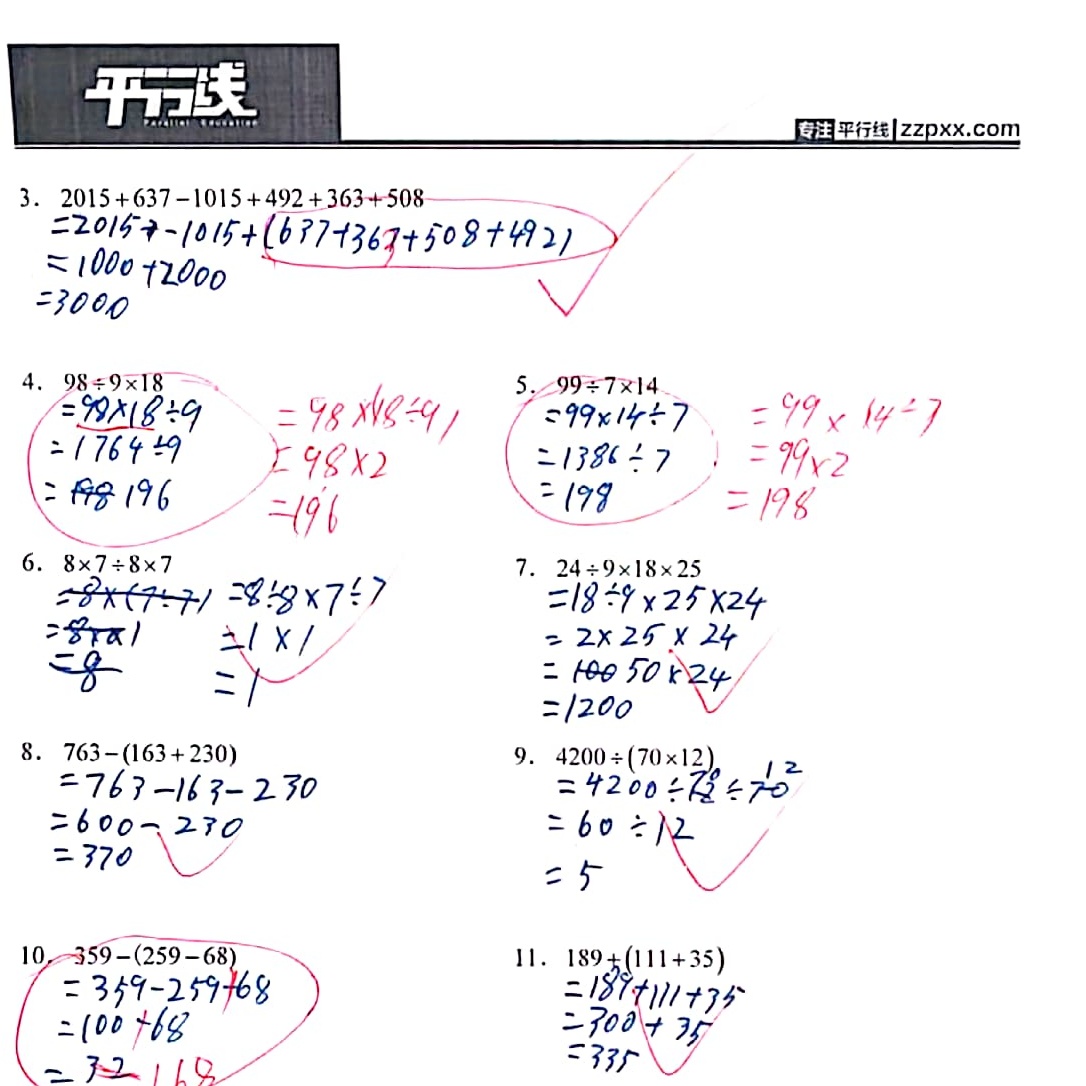 平行线
专注 平行线 | zzpxx.com
3. 2015+637−1015+492+363+508
=2015-1015+(637+363+508+492)
=1000+2000
=3000
4. 98÷9×18
=98×18÷9
=1764÷9
=196
=98×(18÷9)
=98×2
=196
5. 99÷7×14
=99×14÷7
=1386÷7
=198
=99×14÷7
=99×2
=198
6. 8×7÷8×7
=8×(7÷7)
=8×1
=8
=8÷8×7÷7
=1×1
=1
7. 24÷9×18×25
=18÷9×25×24
=2×25×24
=100 50×24
=1200
8. 763−(163+230)
=763-163-230
=600-230
=370
9. 4200÷(70×12)
=4200÷70÷12
=60÷12
=5
10. 359−(259−68)
=359-259+68
=100+68
=32 168
11. 189+(111+35)
=189+111+35
=300+35
=335